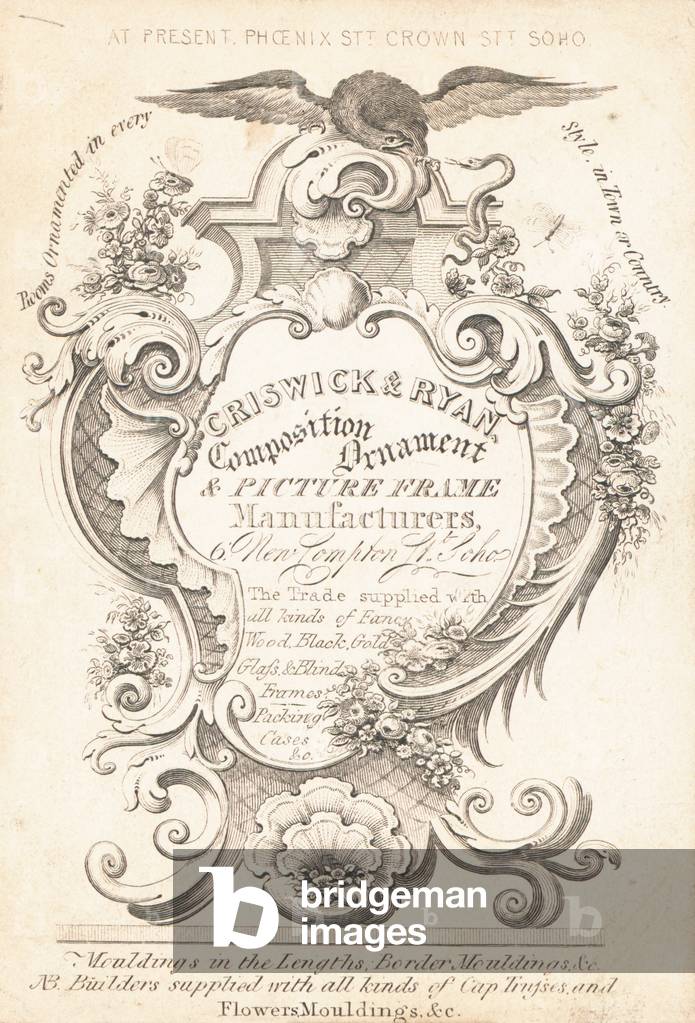 AT PRESENT. PHŒNIX STT CROWN STT SOHO.
Rooms Ornamented in every
Style, in Town or Country
CRISWICK & RYAN,
Composition
Ornament
& PICTURE FRAME
Manufacturers,
6 New Compton St. Soho
The Trade supplied with
all kinds of Fancy
Wood, Black, Gold
Glaſs, & Blind
Frames
Packing
Cases
&c.
Mouldings in the Lengths, Border Mouldings, &c.
NB. Builders supplied with all kinds of Cap Truſses, and
Flowers, Mouldings, &c.
b bridgeman
images